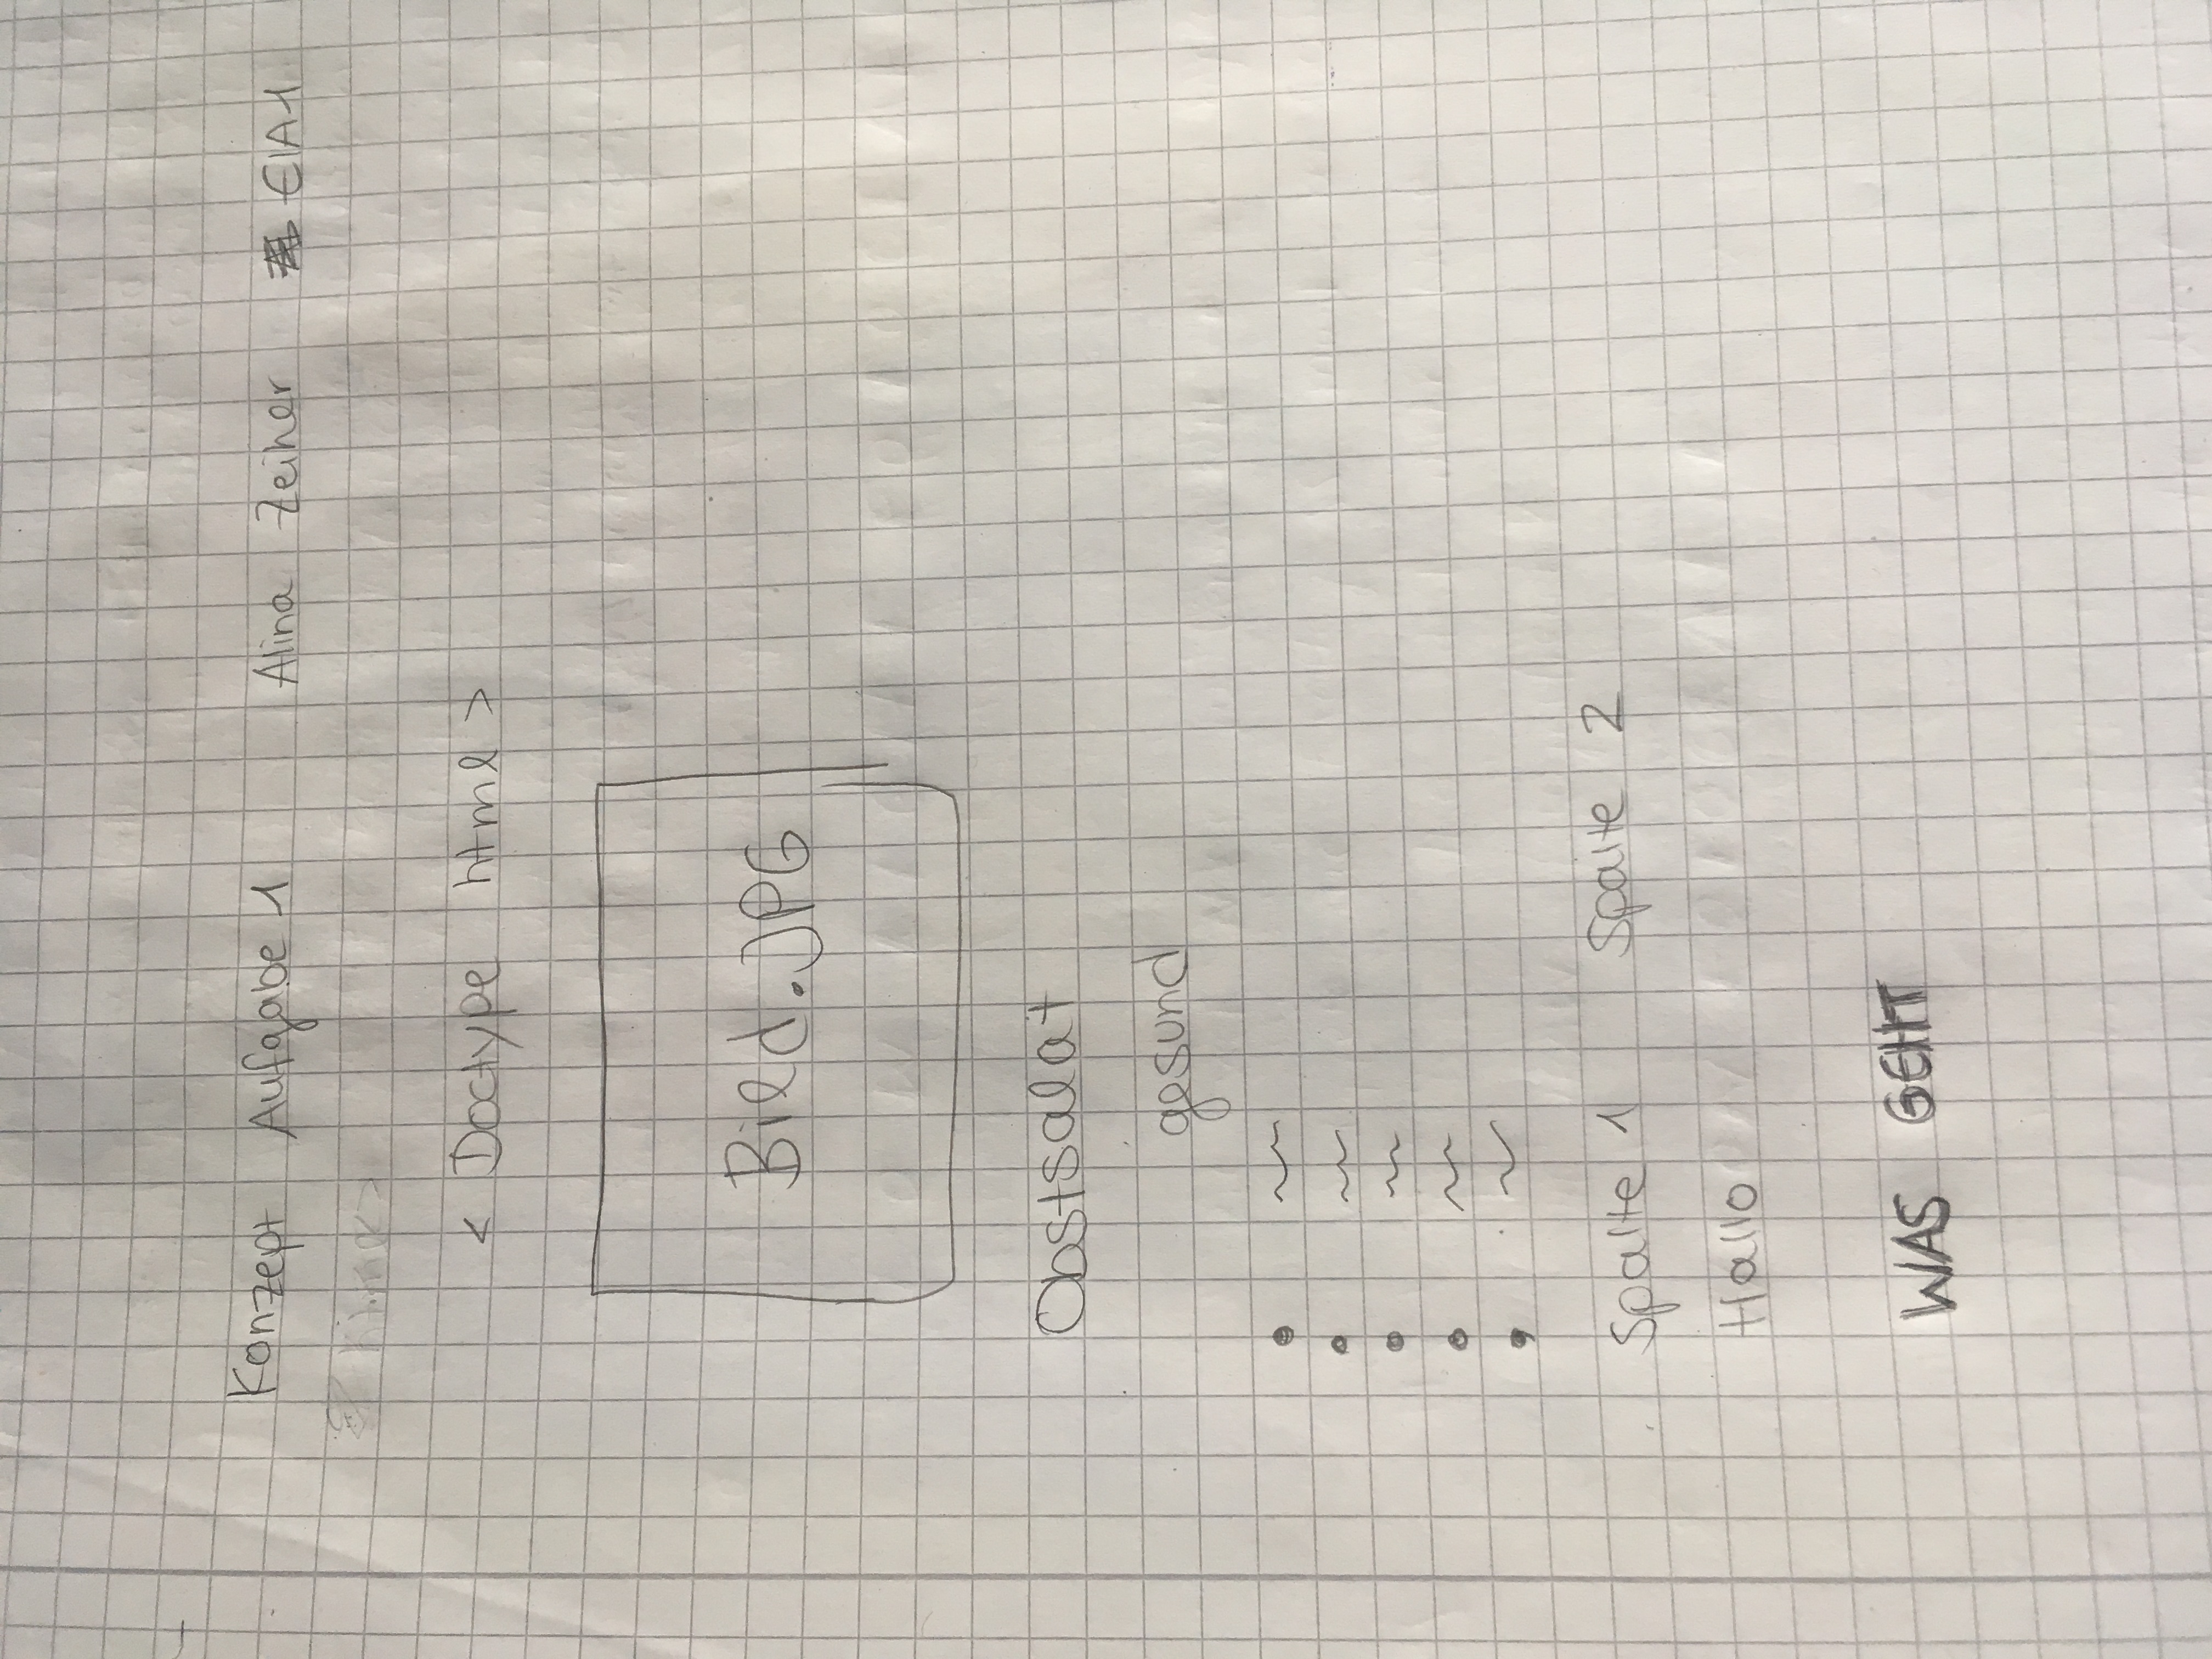 Konzept Aufgabe 1 Alina Zeiher EIA1
< Doctype html >
Bild.JPG
Obstsalat
gesund
Spalte 1 Spalte 2
Hallo
WAS GEHT